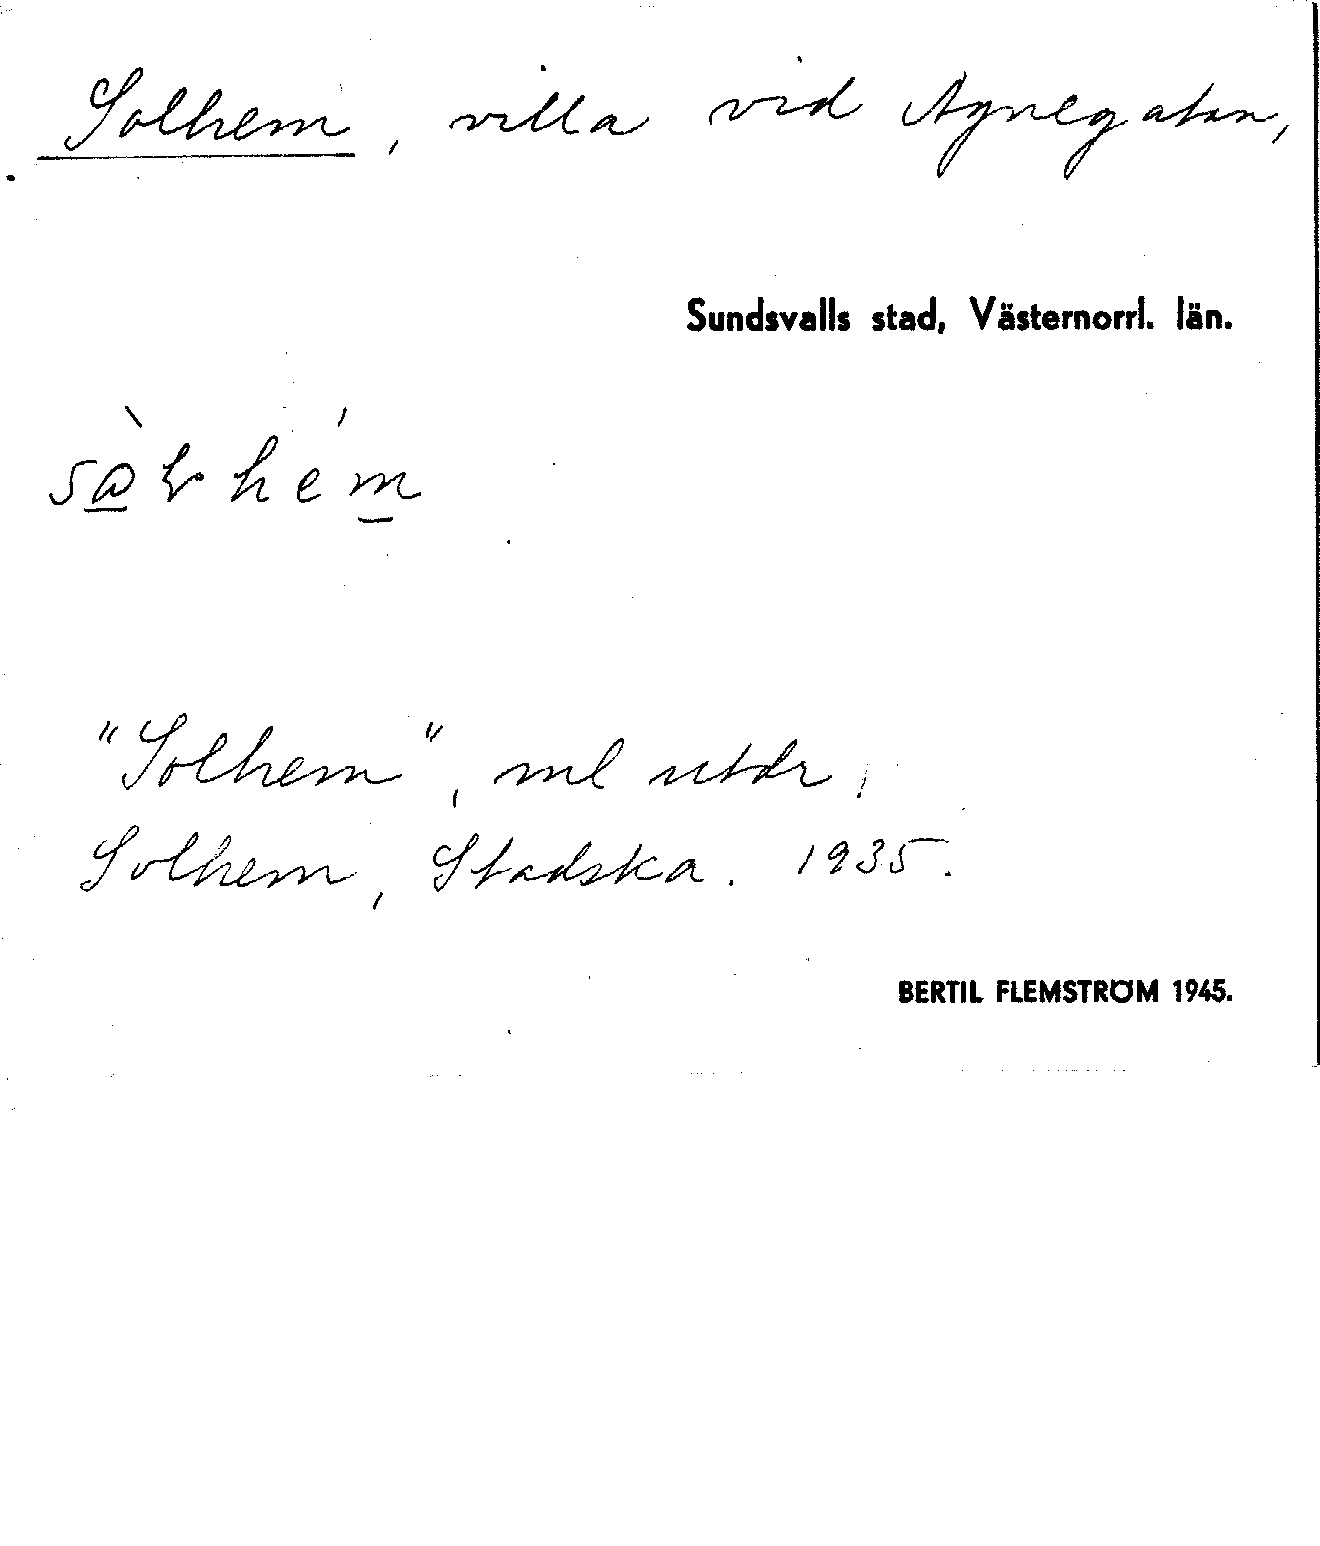 Solhem, villa vid Agnegatan,
Sundsvalls stad, Västernorrl. län.
"Solhem", ml utdr,
Solhem, Stadska. 1935.
BERTIL FLEMSTRÖM 1945.